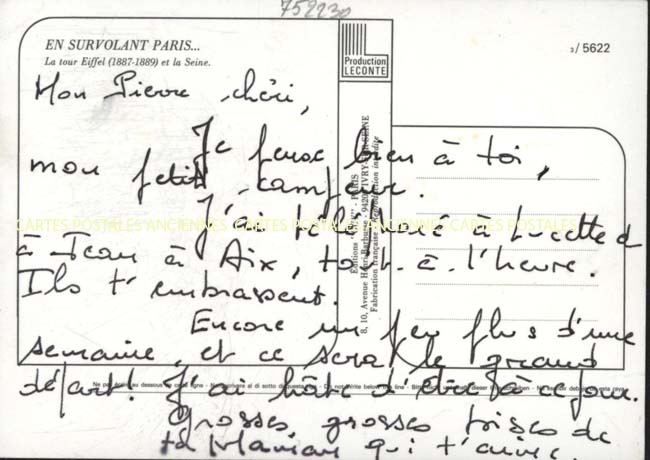 752230
EN SURVOLANT PARIS...
La tour Eiffel (1887-1889) et la Seine.
Production
LECONTE
3/5622
Mon Pierre chéri,
Je pense bien à toi,
mon petit campeur.
J'ai téléphoné à Lucette et
à Jean à Aix, tout à l'heure.
Ils t'embrassent.
Encore un peu plus d'une
semaine, et ce sera le grand
départ! J'ai hâte d'être à ce jour.
Grosses, grosses bises de
ta Maman qui t'aime.
PARIS
8, 10, Avenue Henri-Barbusse - 94200 IVRY-SUR-SEINE
Fabrication française - Reproduction interdite
CARTES POSTALES ANCIENNES CARTES POSTALES ANCIENNES CARTES POSTALES
Ne pas écrire au dessous de cette ligne - Non scrivere al di sotto di questa riga - Do not write below this line